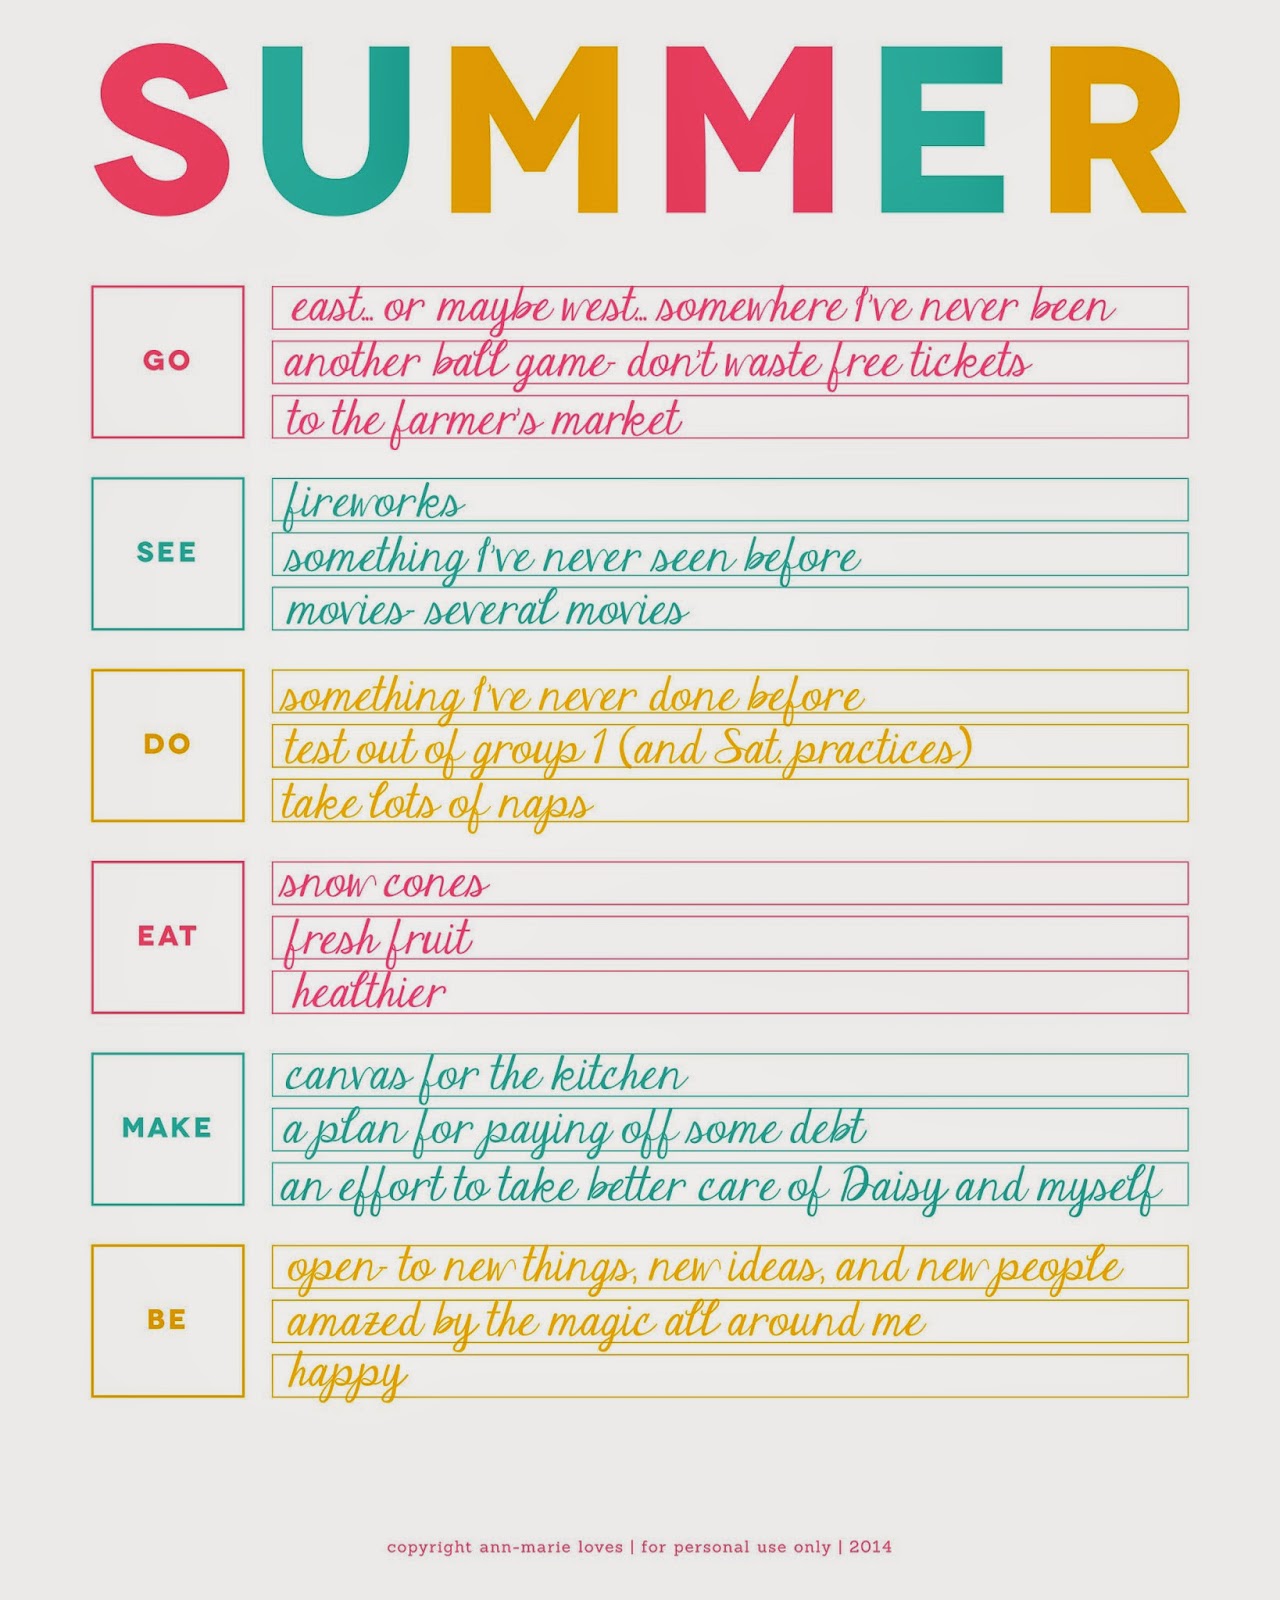 SUMMER
GO
east... or maybe west... somewhere I've never been
another ball game- don't waste free tickets
to the farmer's market
SEE
fireworks
something I've never seen before
movies- several movies
DO
something I've never done before
test out of group 1 (and Sat. practices)
take lots of naps
EAT
snow cones
fresh fruit
healthier
MAKE
canvas for the kitchen
a plan for paying off some debt
an effort to take better care of Daisy and myself
BE
open- to new things, new ideas, and new people
amazed by the magic all around me
happy
copyright ann-marie loves | for personal use only | 2014